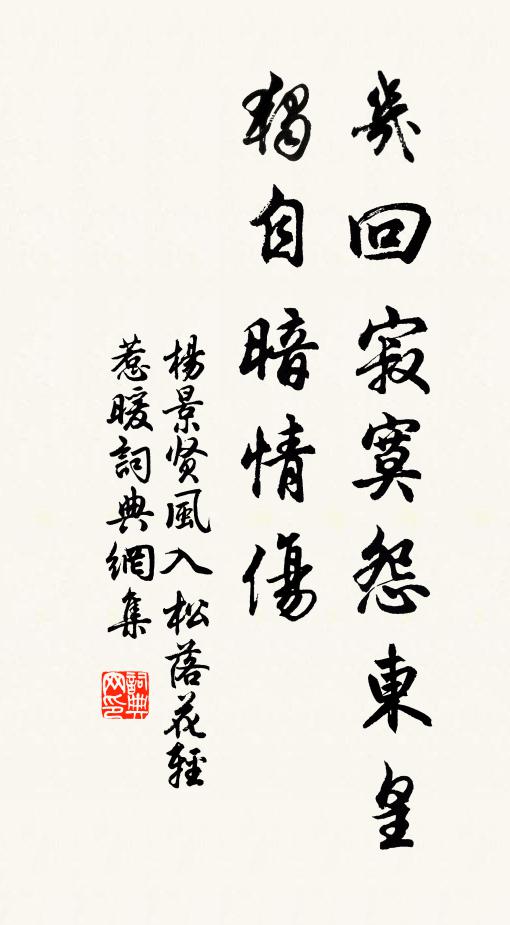 幾回寂寞怨東皇
獨自暗情傷
楊景贤風入松落花輕
惹暖詞典網集
詞典网印